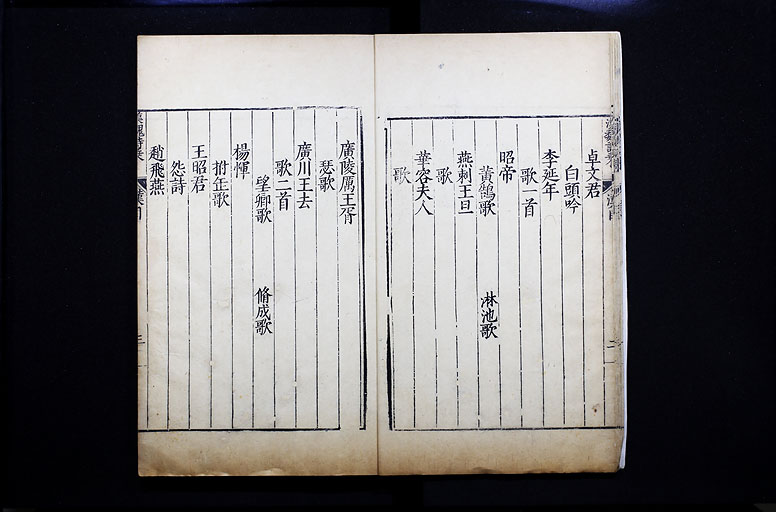 卓文君
白頭吟
李延年
歌一首
昭帝
黃鵠歌 淋池歌
燕刺王旦
歌
華容夫人
歌
廣陵厲王胥
瑟歌
廣川王去
歌二首
望卿歌 脩成歌
楊惲
拊缶歌
王昭君
怨詩
趙飛燕